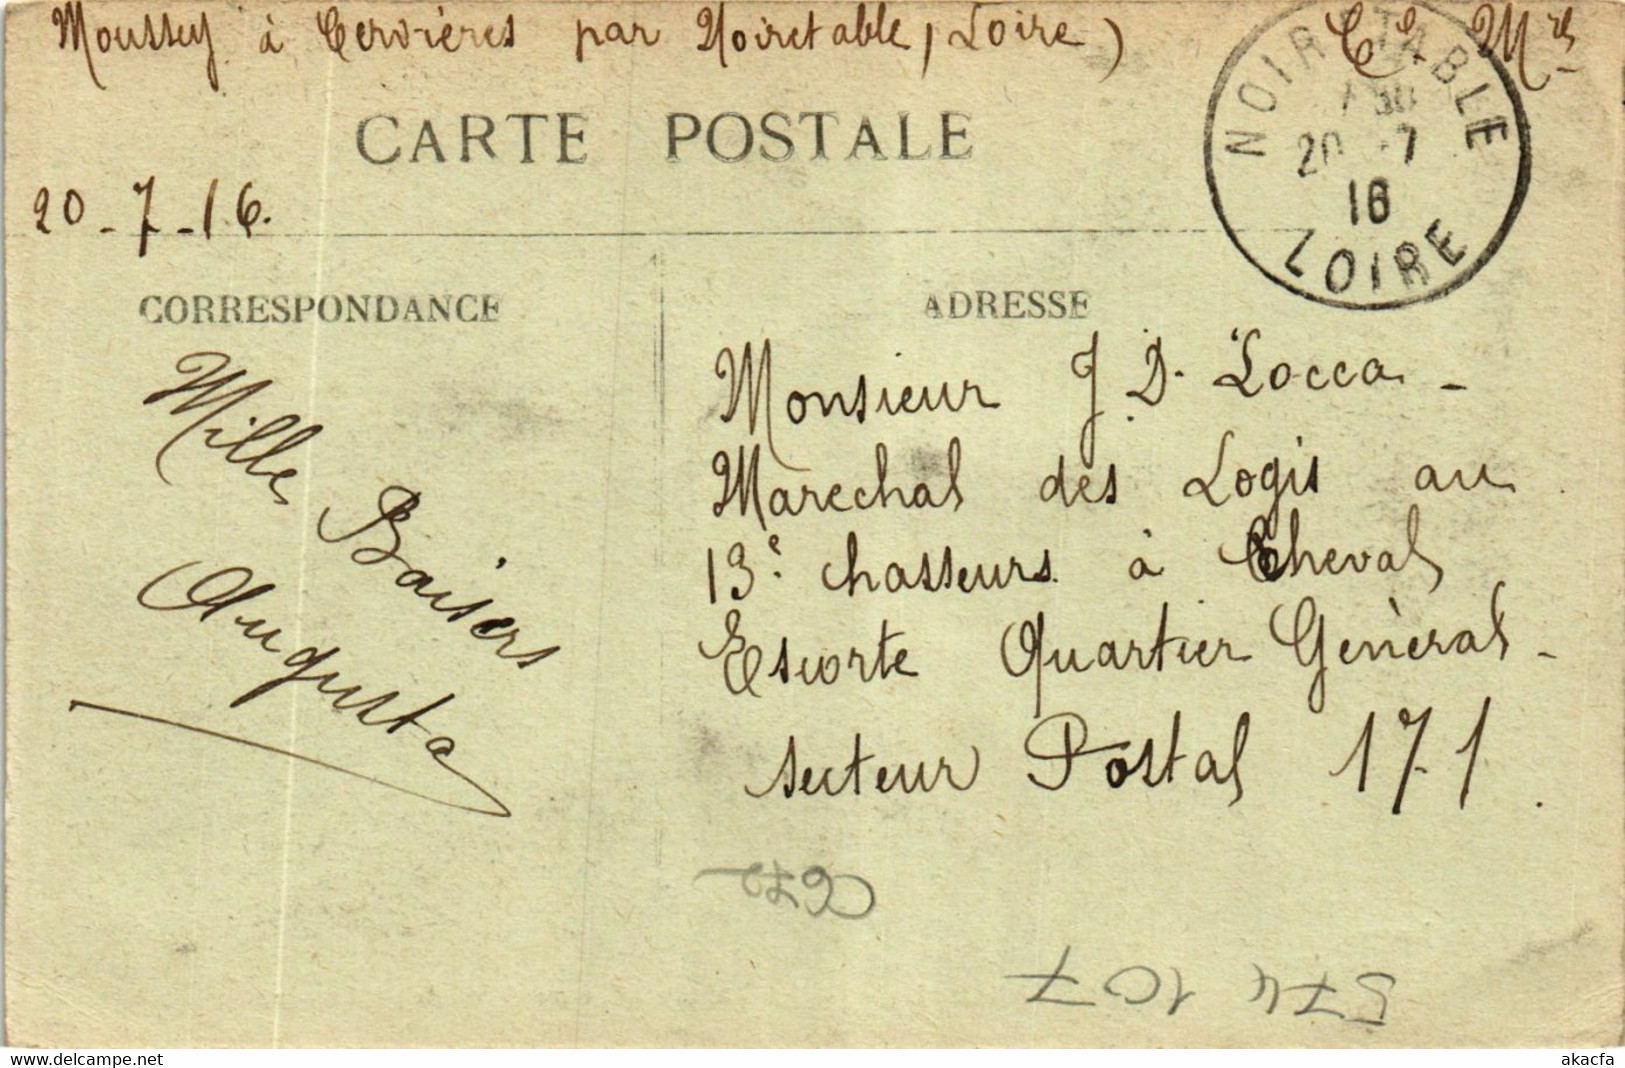 Moussey à Cervières par Noiretable, Loire)
CARTE POSTALE
NOIRETABLE
20 -7
16
LOIRE
20-7-16.
CORRESPONDANCE
ADRESSE
Mille Baisers
Augusta
Monsieur J. D. Locca -
Marechal des Logis au
13e. chasseurs à Cheval
Escorte Quartier Général -
secteur Postal 171.
672
574 107
akacfa
delcampe.net